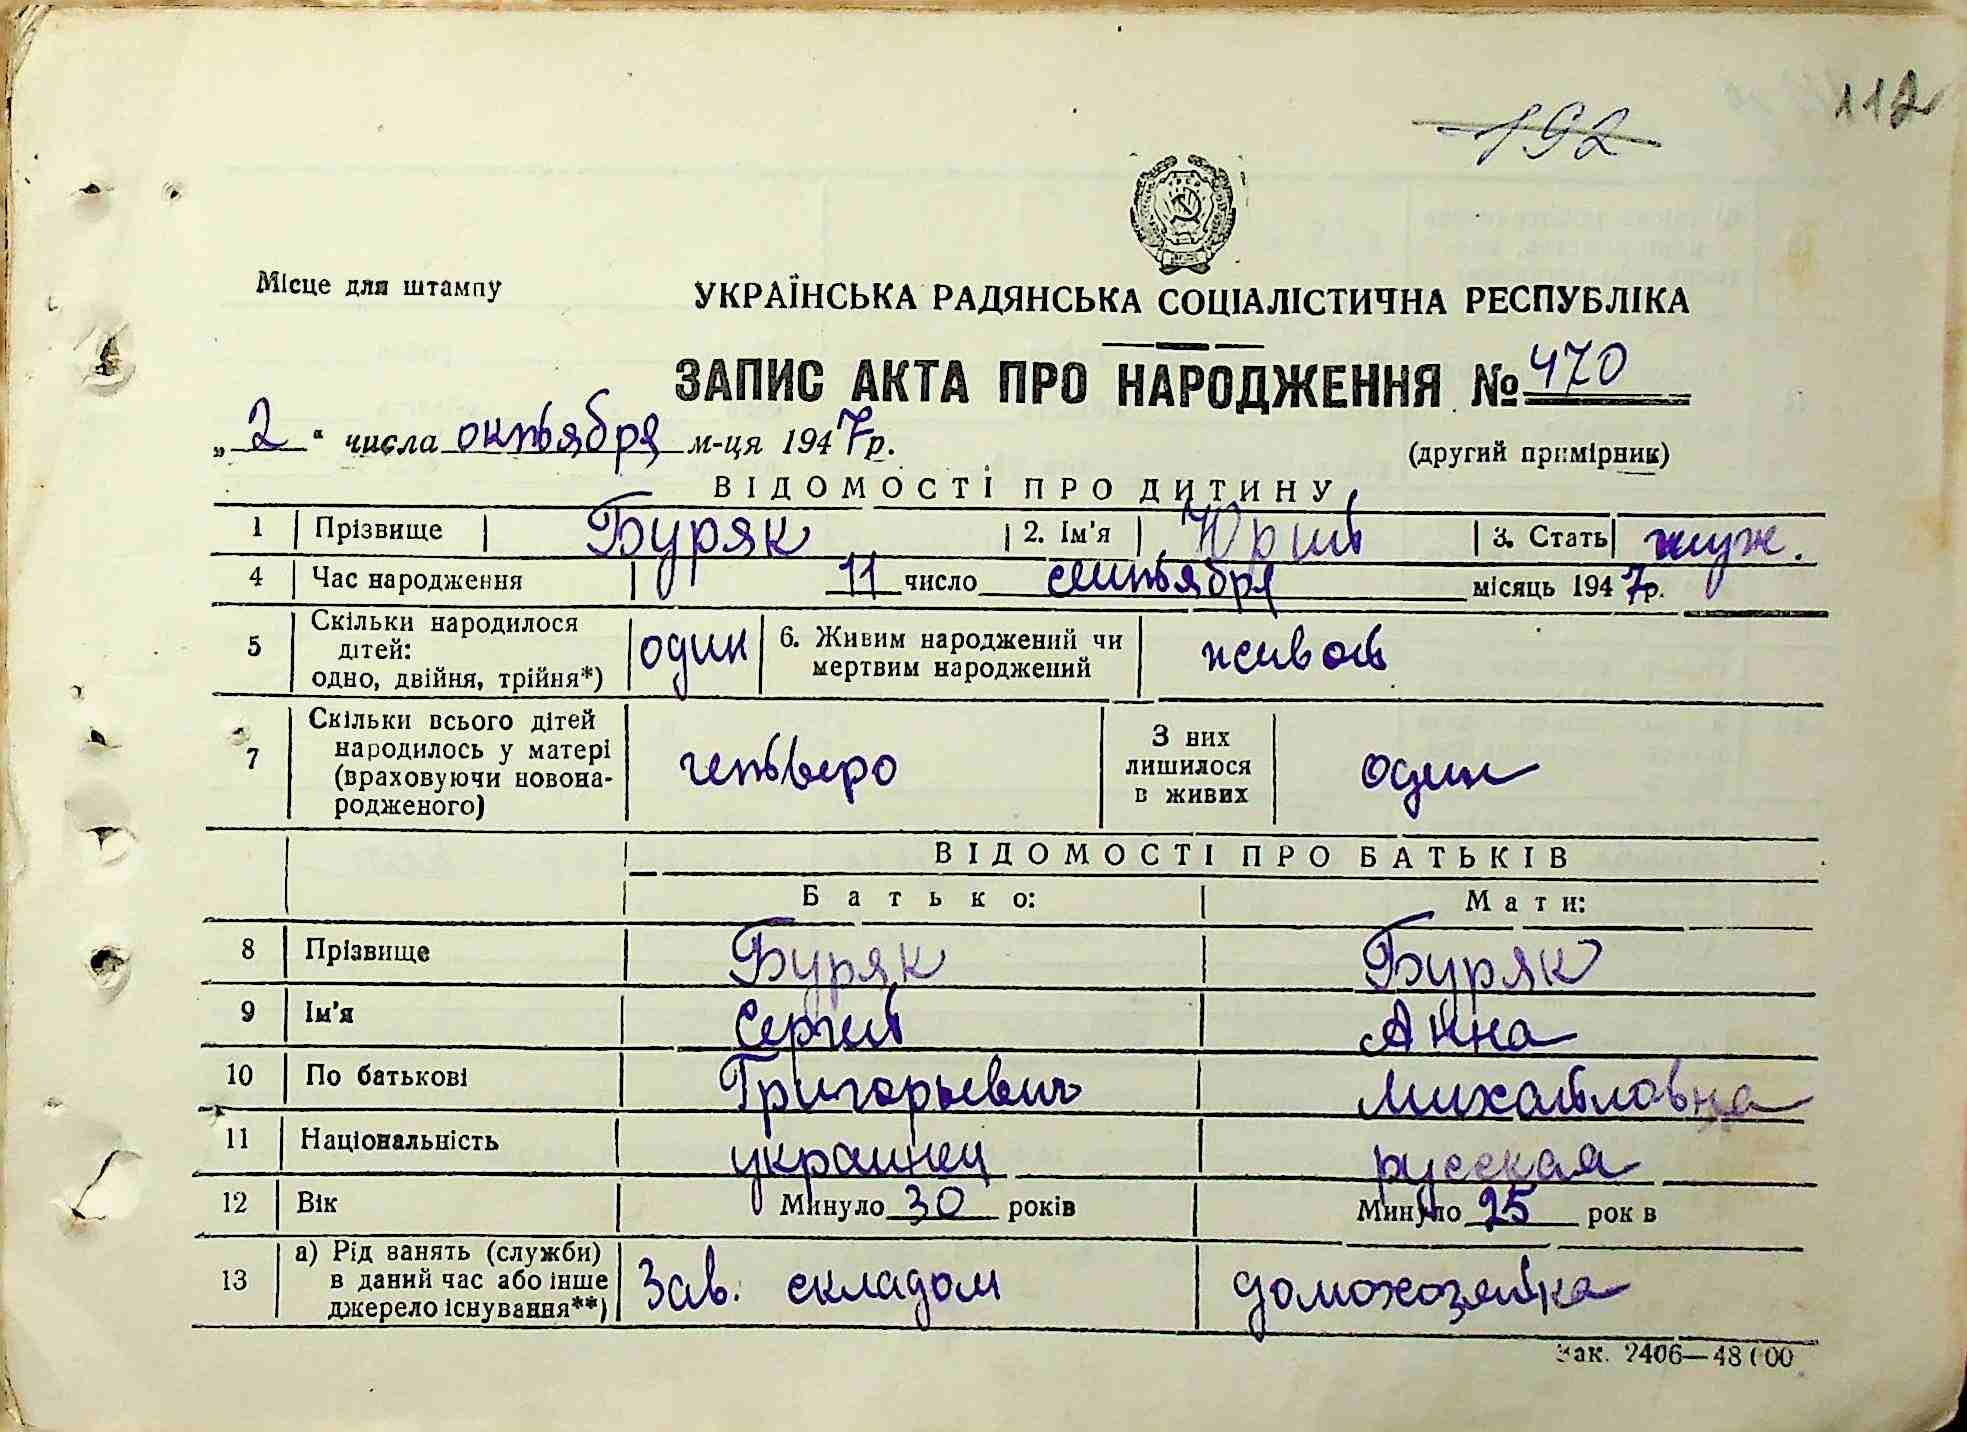 112
192
Місце для штампу
УКРАЇНСЬКА РАДЯНСЬКА СОЦІАЛІСТИЧНА РЕСПУБЛІКА
ЗАПИС АКТА ПРО НАРОДЖЕННЯ № 470
„2“ числа октября м-ця 1947 р.
(другий примірник)
ВІДОМОСТІ ПРО ДИТИНУ
1 Прізвище Буряк 2. Ім'я Юрий 3. Стать муж.
4 Час народження 11 число сентября місяць 1947 р.
5 Скільки народилося дітей: одно, двійня, трійня*) один 6. Живим народжений чи мертвим народжений живой
7 Скільки всього дітей народилось у матері (враховуючи новонародженого) четверо З них лишилося в живих один
ВІДОМОСТІ ПРО БАТЬКІВ
Батько: Мати:
8 Прізвище Буряк Буряк
9 Ім'я Сергей Анна
10 По батькові Григорьевич Михайловна
11 Національність украинец русская
12 Вік Минуло 30 років Минуло 25 рок в
13 а) Рід занять (служби) в даний час або інше джерело існування**) Зав. складом домохозяйка
Зак. 2406—48000